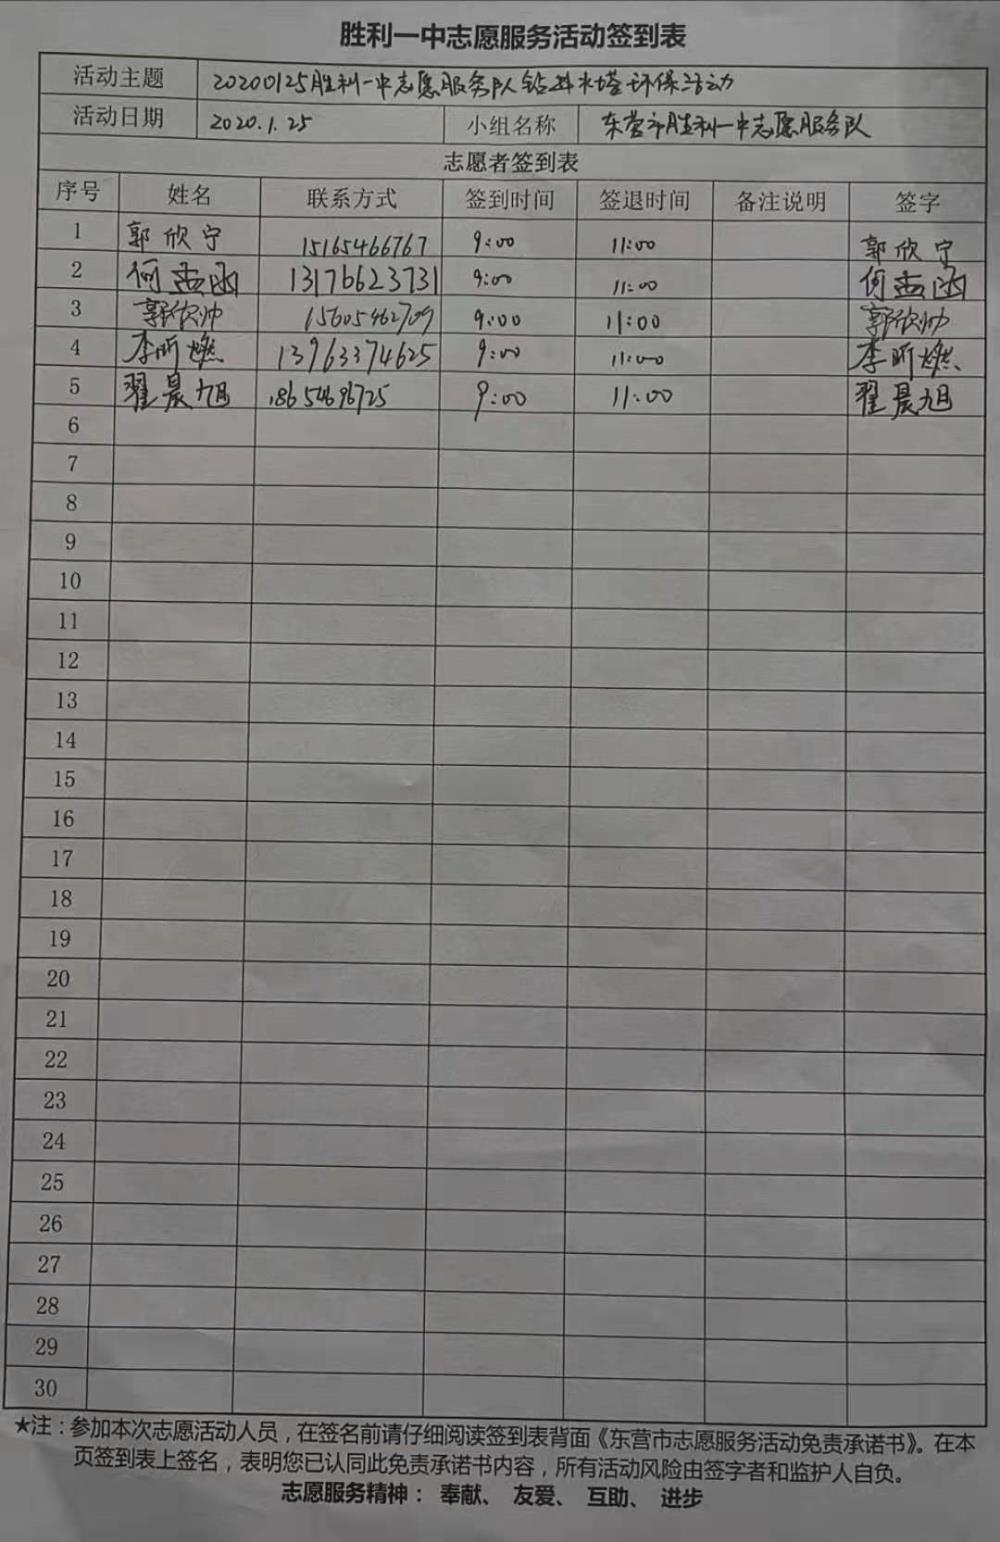 胜利一中志愿服务活动签到表
活动主题 20200125胜利一中志愿服务队钻井水塔环保活动
活动日期 2020.1.25 小组名称 东营市胜利一中志愿服务队
志愿者签到表
序号 姓名 联系方式 签到时间 签退时间 备注说明 签字
1 郭欣宁 15165466767 9:00 11:00 郭欣宁
2 何孟函 13176623731 9:00 11:00 何孟函
3 郭欣帅 15605462709 9:00 11:00 郭欣帅
4 李昕燃 13963374625 9:00 11:00 李昕燃
5 翟晨旭 9:00 11:00 翟晨旭
6
7
8
9
10
11
12
13
14
15
16
17
18
19
20
21
22
23
24
25
26
27
28
29
30
★注：参加本次志愿活动人员，在签名前请仔细阅读签到表背面《东营市志愿服务活动免责承诺书》。在本
页签到表上签名，表明您已认同此免责承诺书内容，所有活动风险由签字者和监护人自负。
志愿服务精神：奉献、友爱、互助、进步